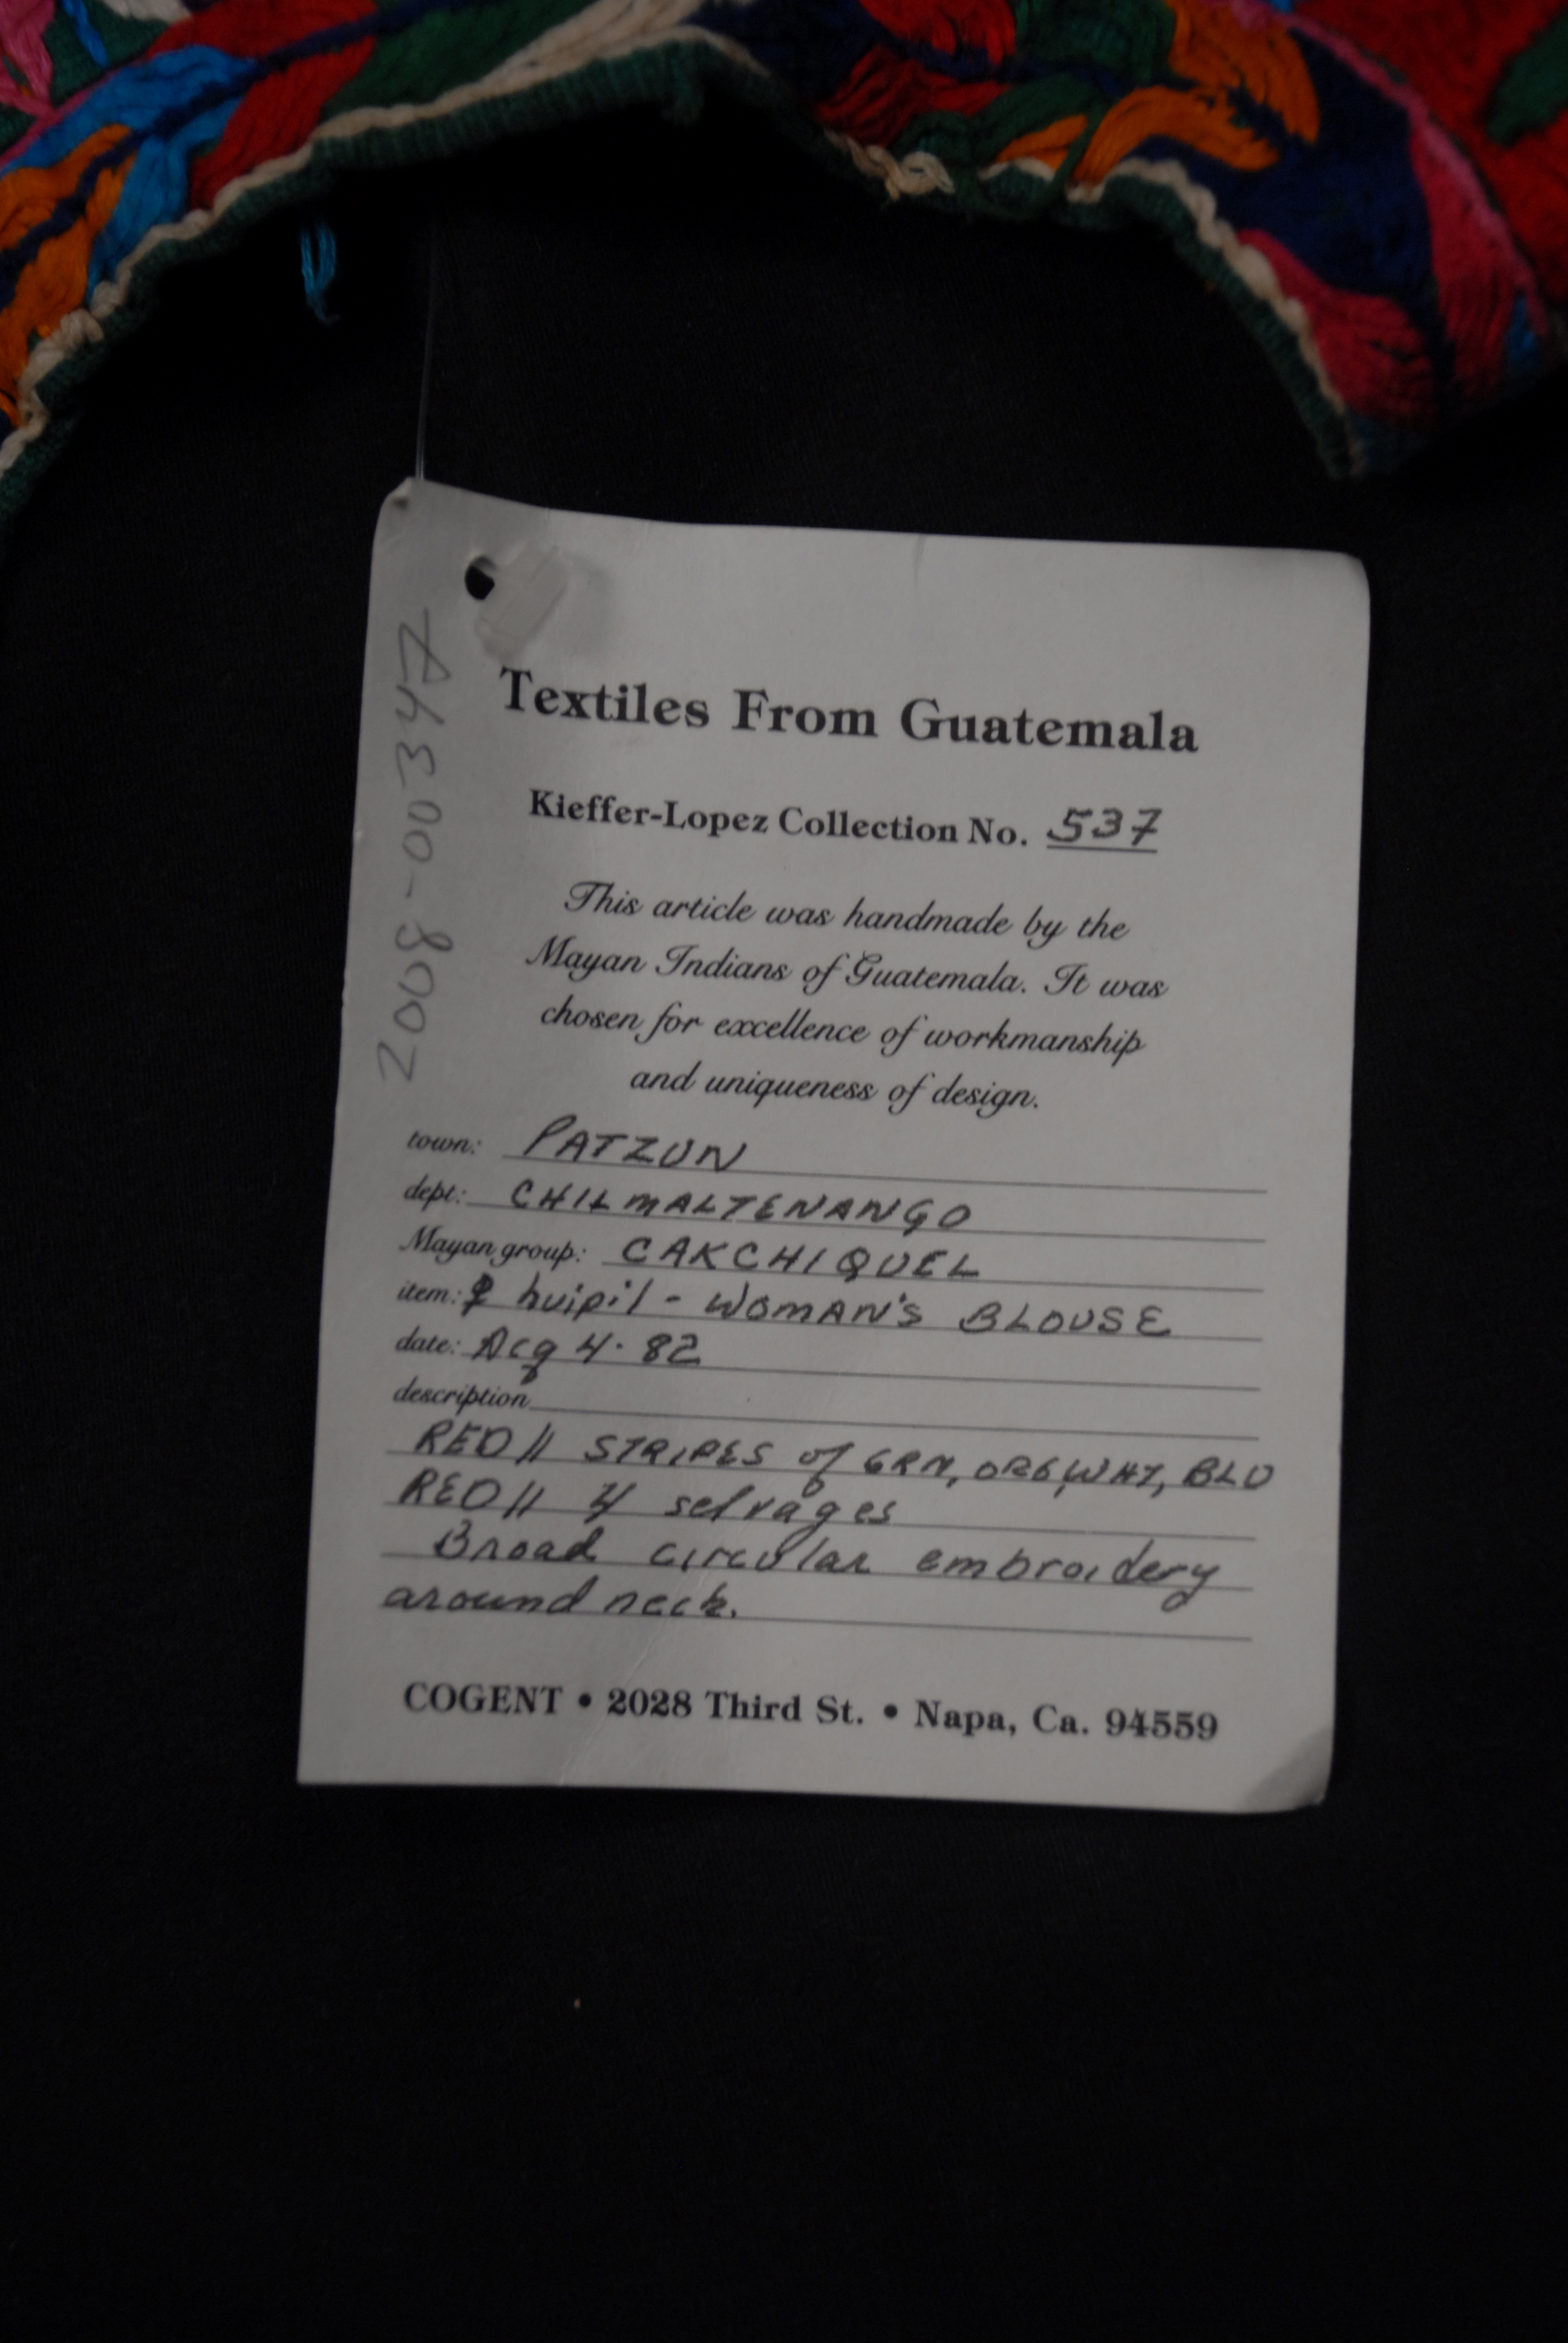 2008-00347
Textiles From Guatemala
Kieffer-Lopez Collection No. 537
This article was handmade by the
Mayan Indians of Guatemala. It was
chosen for excellence of workmanship
and uniqueness of design.
town: PATZUN
dept: CHILMALTENANGO
Mayan group: CAKCHIQUEL
item: ♀ huipil - WOMAN'S BLOUSE
date: Acq 4·82
description
RED // STRIPES of GRN, ORG, WHT, BLU
RED // 4 selvages
Broad circular embroidery
around neck.
COGENT • 2028 Third St. • Napa, Ca. 94559